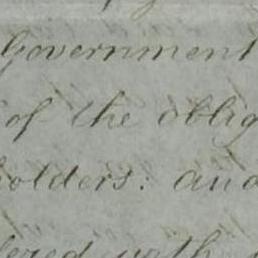 Government
of the oblig
holders. and
lered with